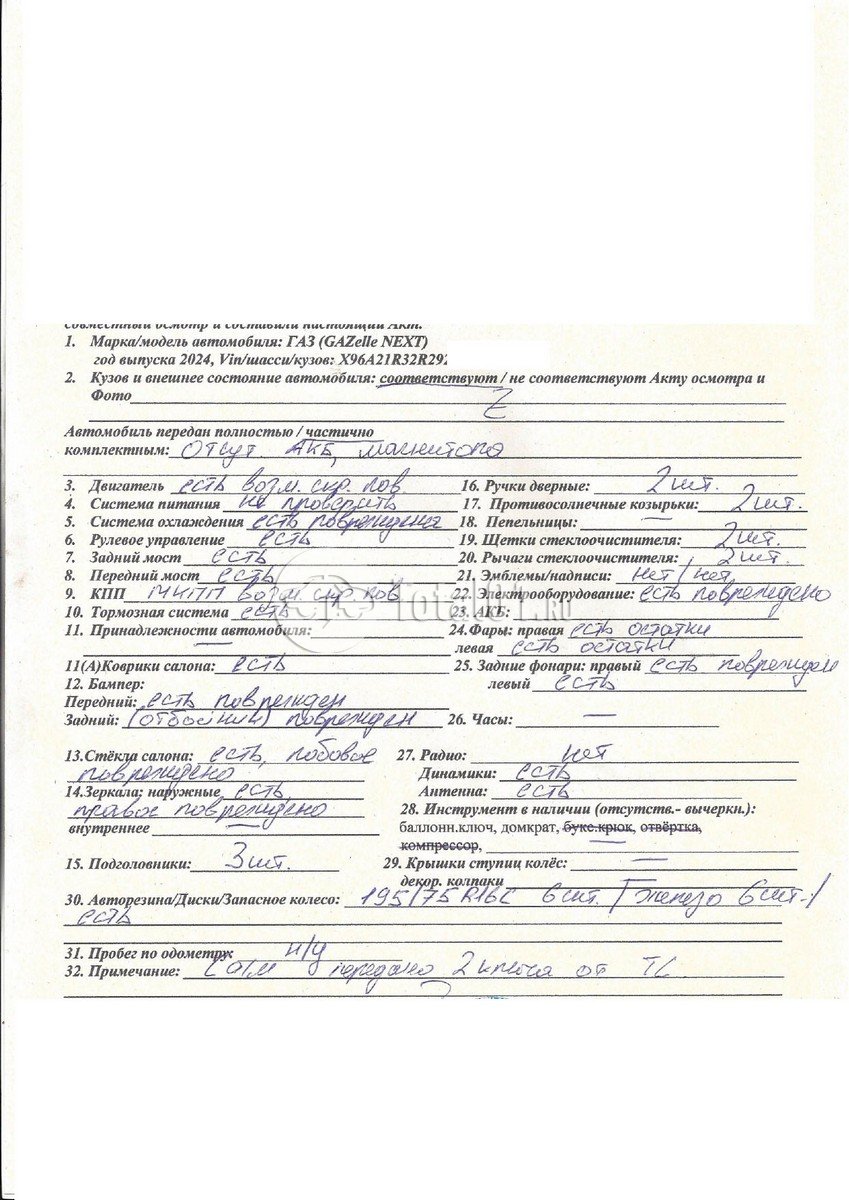 совместный осмотр и составили настоящий Акт.
1. Марка/модель автомобиля: ГАЗ (GAZelle NEXT)
год выпуска 2024, Vin/шасси/кузов: X96A21R32R292
2. Кузов и внешнее состояние автомобиля: соответствуют / не соответствуют Акту осмотра и
Фото
Z
Автомобиль передан полностью / частично
комплектным: Отсут АКБ, магнитола
3. Двигатель есть возм. скр. пов
4. Система питания не проверить
5. Система охлаждения есть повреждена
6. Рулевое управление есть
7. Задний мост есть
8. Передний мост есть
9. КПП МКПП возм. скр. пов
10. Тормозная система есть
11. Принадлежности автомобиля:
—
11(А)Коврики салона: есть
12. Бампер:
Передний: есть поврежден
Задний: (отбойник) поврежден
13.Стёкла салона: есть, лобовое
повреждено
14.Зеркала: наружные есть,
правое повреждено
внутреннее —
15. Подголовники: 3 шт.
16. Ручки дверные: 2 шт.
17. Противосолнечные козырьки: 2 шт.
18. Пепельницы: —
19. Щетки стеклоочистителя: 2 шт.
20. Рычаги стеклоочистителя: 2 шт.
21. Эмблемы/надписи: нет / нет
22. Электрооборудование: есть повреждено
23. АКБ:
24.Фары: правая есть остатки
левая есть остатки
25. Задние фонари: правый есть поврежден
левый есть
26. Часы: —
27. Радио: нет
Динамики: есть
Антенна: есть
28. Инструмент в наличии (отсутств.- вычеркн.):
баллонн.ключ, домкрат, букс.крюк, отвёртка,
компрессор, —
29. Крышки ступиц колёс: —
декор. колпаки —
30. Авторезина/Диски/Запасное колесо: 195/75 R16C 6 шт. / железо 6 шт. /
есть
31. Пробег по одометру н/у
32. Примечание: С а/м передано 2 ключа от ТС
Total01.RU